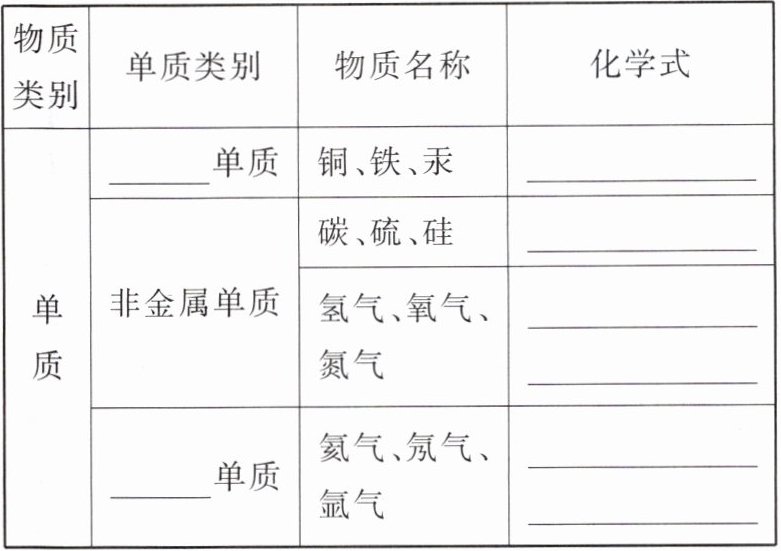 物质
类别
单质类别
物质名称
化学式
单
质
______单质
铜、铁、汞
非金属单质
碳、硫、硅
氢气、氧气、
氮气
______单质
氦气、氖气、
氩气